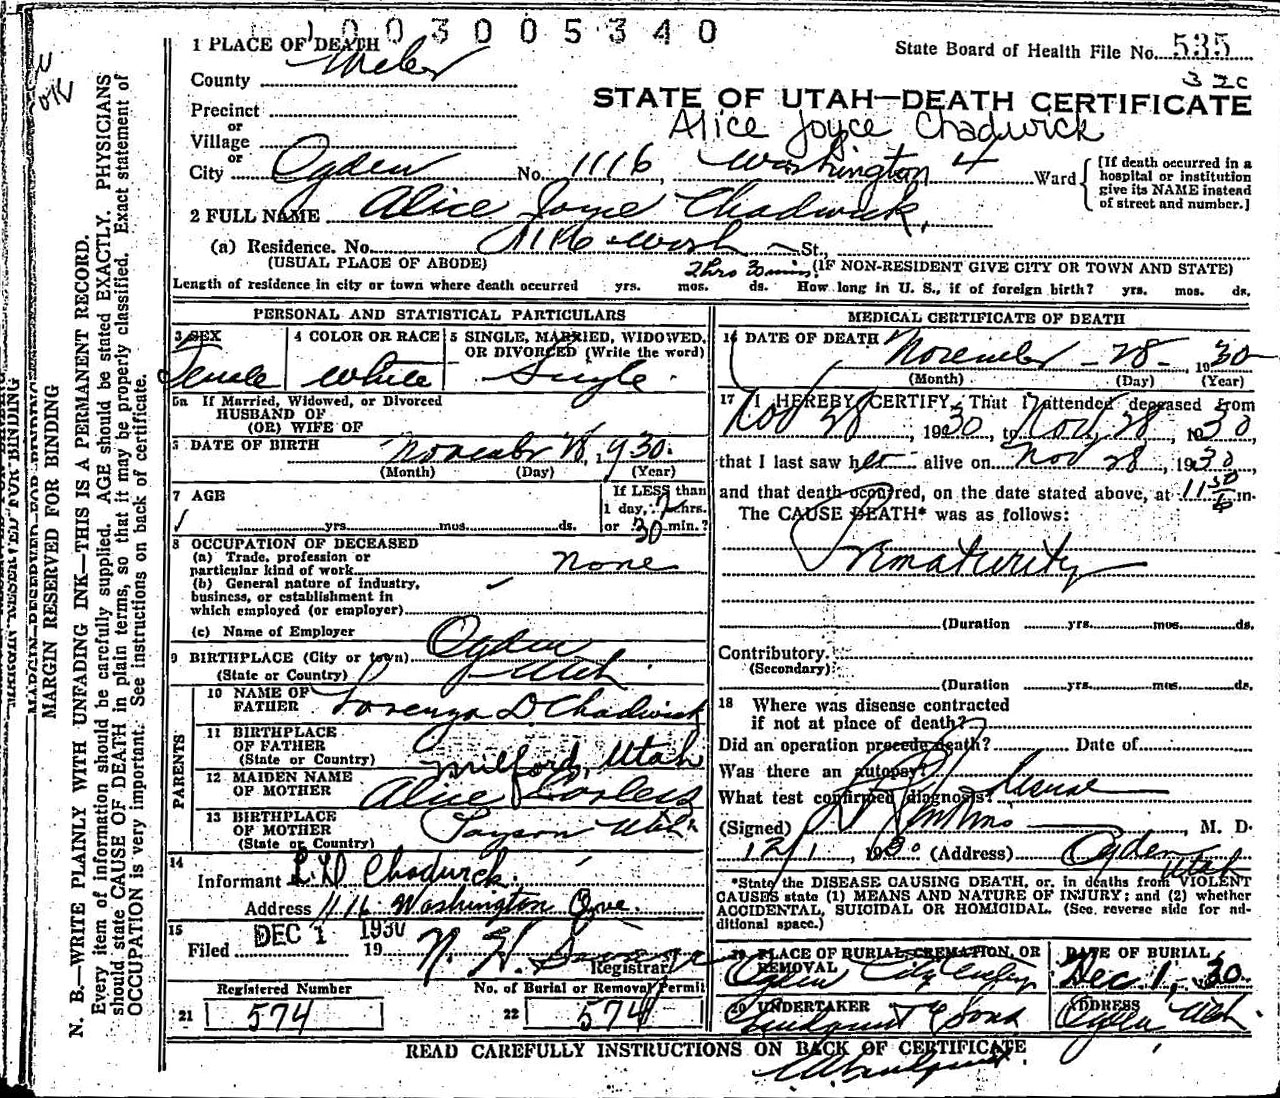 1003005340
1 PLACE OF DEATH
State Board of Health File No. 535
County Weber
STATE OF UTAH—DEATH CERTIFICATE
Precinct
or
Alice Joyce Chadwick
Village
or
City Ogden No. 1116 Washington 4 Ward
[If death occurred in a hospital or institution give its NAME instead of street and number.]
2 FULL NAME Alice Joyce Chadwick
(a) Residence. No. 1116 Wash St.,
(USUAL PLACE OF ABODE) (IF NON-RESIDENT GIVE CITY OR TOWN AND STATE)
2 hrs 30 mins
Length of residence in city or town where death occurred yrs. mos. ds. How long in U. S., if of foreign birth? yrs. mos. ds.
PERSONAL AND STATISTICAL PARTICULARS
3 SEX 4 COLOR OR RACE 5 SINGLE, MARRIED, WIDOWED, OR DIVORCED (Write the word)
Female White Single
5a If Married, Widowed, or Divorced
HUSBAND OF
(OR) WIFE OF
6 DATE OF BIRTH November 28, 1930.
(Month) (Day) (Year)
7 AGE
If LESS than
1 day, 2 hrs.
yrs. mos. ds. or 30 min.?
8 OCCUPATION OF DECEASED
(a) Trade, profession or
particular kind of work None
(b) General nature of industry,
business, or establishment in
which employed (or employer)
(c) Name of Employer
9 BIRTHPLACE (City or town) Ogden
(State or Country) Utah
PARENTS
10 NAME OF FATHER Lorenzo D. Chadwick
11 BIRTHPLACE OF FATHER
(State or Country) Milford, Utah
12 MAIDEN NAME OF MOTHER Alice Corless
13 BIRTHPLACE OF MOTHER Payson Utah
(State or Country)
14
Informant L. D. Chadwick.
Address 1116 Washington Ave.
15
Filed DEC 1 1930 19
Registrar
Registered Number No. of Burial or Removal Permit
21 574 22 574
MEDICAL CERTIFICATE OF DEATH
16 DATE OF DEATH November 28 1930
(Month) (Day) (Year)
17 I HEREBY CERTIFY, That I attended deceased from
Nov 28, 1930, to Nov. 28, 1930
that I last saw her alive on Nov 28, 1930
and that death occurred, on the date stated above, at 11 30 m.
The CAUSE DEATH* was as follows:
Prematurity
(Duration yrs. mos. ds.
Contributory.
(Secondary)
(Duration yrs. mos. ds.
18 Where was disease contracted
if not at place of death?
Did an operation precede death? Date of
Was there an autopsy?
What test confirmed diagnosis?
(Signed) , M. D.
12/1, 1930 (Address) Ogden Utah
*State the DISEASE CAUSING DEATH, or, in deaths from VIOLENT
CAUSES state (1) MEANS AND NATURE OF INJURY; and (2) whether
ACCIDENTAL, SUICIDAL OR HOMICIDAL. (See reverse side for ad-
ditional space.)
19 PLACE OF BURIAL, CREMATION, OR REMOVAL DATE OF BURIAL
Ogden City Dec 1, 30
20 UNDERTAKER ADDRESS
Lindquist & Sons Ogden, Utah.
READ CAREFULLY INSTRUCTIONS ON BACK OF CERTIFICATE
MARGIN RESERVED FOR BINDING
N. B.—WRITE PLAINLY WITH UNFADING INK—THIS IS A PERMANENT RECORD.
Every item of information should be carefully supplied. AGE should be stated EXACTLY. PHYSICIANS
should state CAUSE OF DEATH in plain terms, so that it may be properly classified. Exact statement of
OCCUPATION is very important. See instructions on back of certificate.